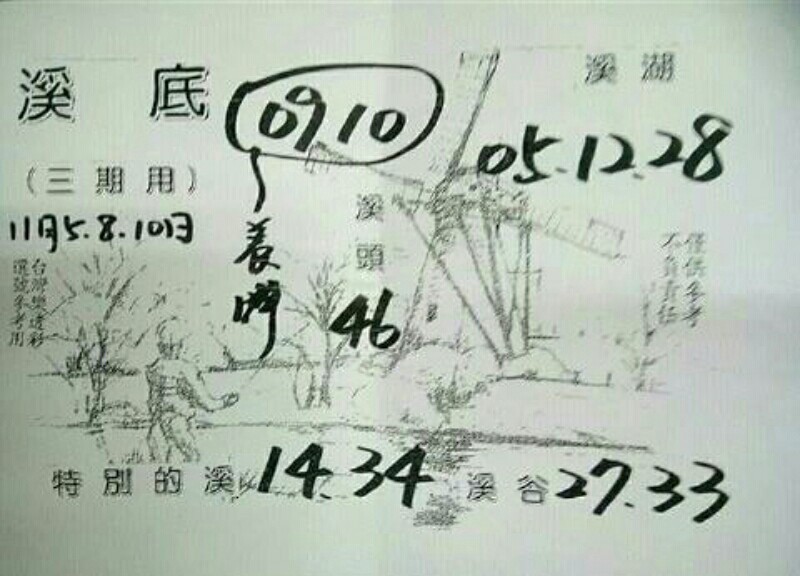 溪底
0910
溪湖
05.12.28
(三期用)
11月5.8.10日
養牌
溪頭
46
僅供參考
不負責任
台灣樂透彩
選號參考用
特別的溪 14.34
溪谷 27.33